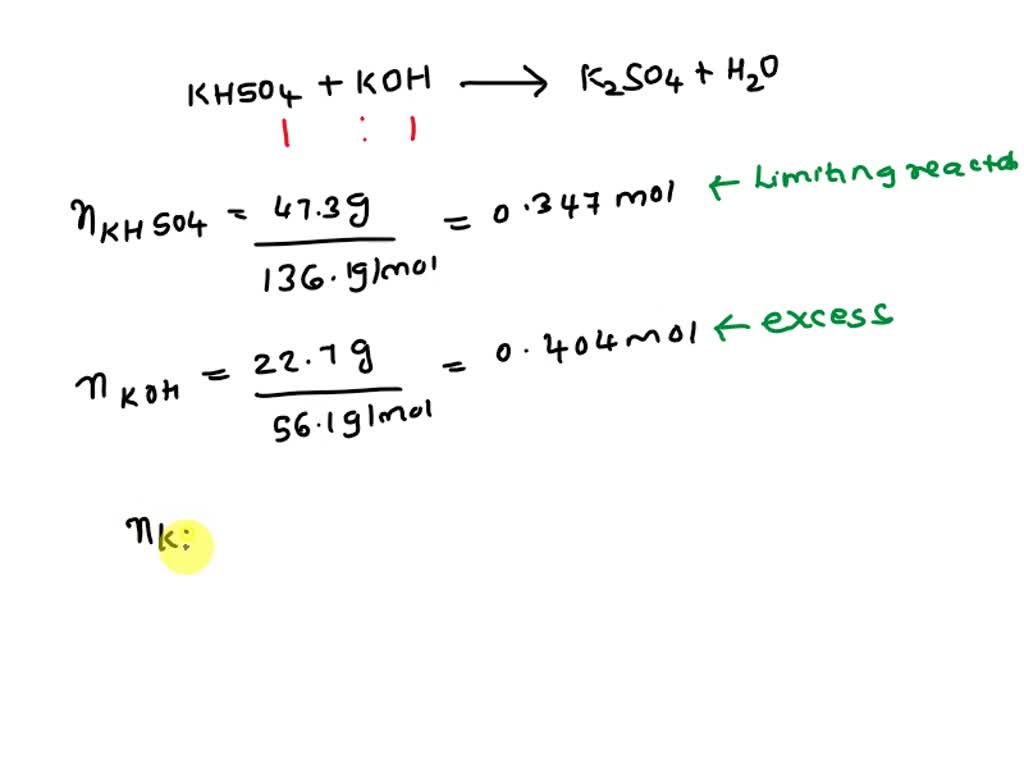 KHSO4 + KOH ⟶ K2SO4 + H2O
1 : 1
nKHSO4 = 47.3g / 136.1g/mol = 0.347 mol ← Limiting
nKOH = 22.7g / 56.1g/mol = 0.404 mol ← excess
nK